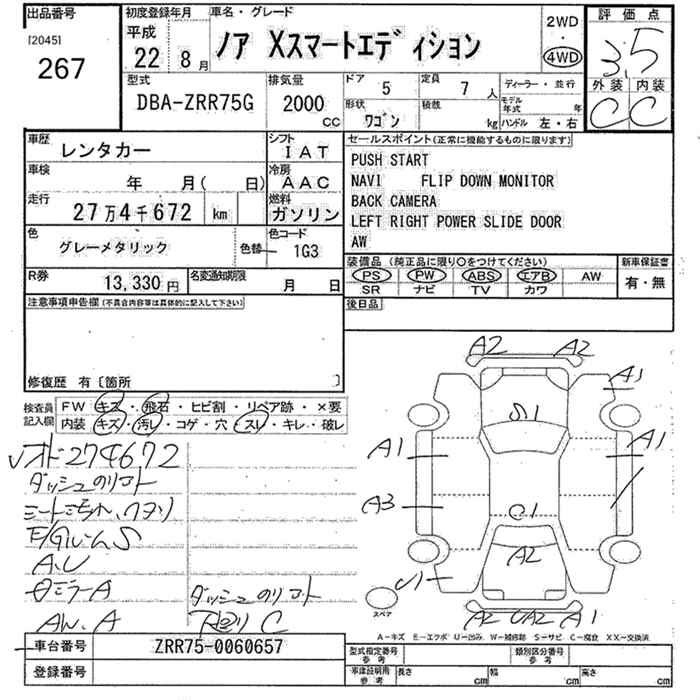 出品番号
[2045]
267
初度登録年月
平成
22年 8月
車名・グレード
ノア Xスマートエディション
2WD
・
4WD
評価点
3.5
外装 内装
C C
型式
DBA-ZRR75G
排気量
2000
CC
ドア
5
定員
7 人
形状
ワゴン
積載
kg
ディーラー・並行
モデル年式 年
ハンドル 左・右
車歴
レンタカー
シフト
IAT
車検
年 月( 日)
冷房
AAC
走行
27万4千672 km
燃料
ガソリン
色
グレーメタリック
色替
色コード
1G3
R券
13,330円
名変通知期限
月 日
セールスポイント(正常に機能するものに限ります)
PUSH START
NAVI FLIP DOWN MONITOR
BACK CAMERA
LEFT RIGHT POWER SLIDE DOOR
AW
装備品(純正品に限り○をつけてください)
PS PW ABS エアB AW
SR ナビ TV カワ
新車保証書
有・無
後日品
注意事項申告欄(不具合内容等は具体的に記入して下さい)
修復歴 有〔箇所 〕
検査員記入欄
FW キズ・飛石・ヒビ割・リペア跡・×要
内装 キズ・汚レ・コゲ・穴・スレ・キレ・破レ
274672
ダッシュのリコト
A.U
ミラーA
AW.A
ダッシュのリコト
下廻リC
A2 A2
A1
S1
A1
A1
A3
C1
A2
U1
A2 UA2 A1
スペア
A-キズ E-エクボ U-凹み W-補修跡 S-サビ C-腐食 XX-交換済
車台番号
ZRR75-0060657
登録番号
型式指定番号 参考
類別区分番号 参考
車庫証明用 参考
長さ cm
幅 cm
高さ cm